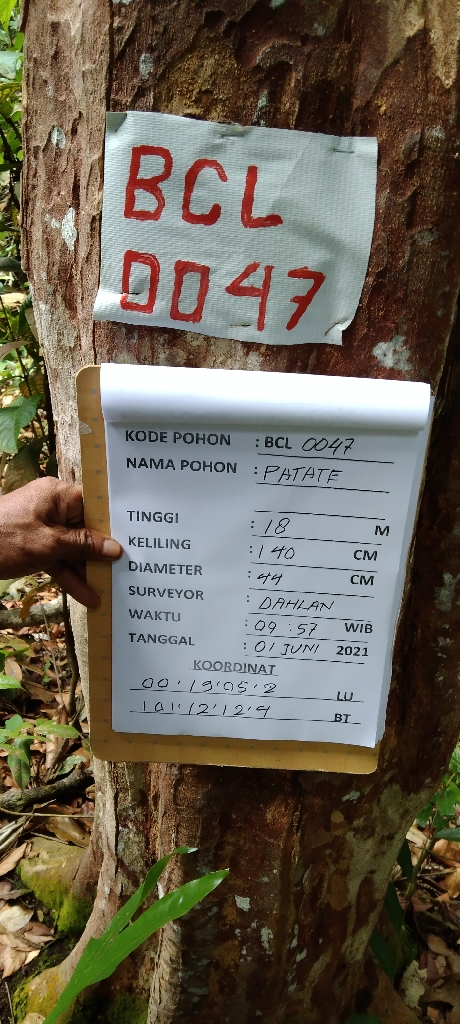 BCL
0047
KODE POHON : BCL 0047
NAMA POHON : PATATE
TINGGI : 18 M
KELILING : 140 CM
DIAMETER : 44 CM
SURVEYOR : DAHLAN
WAKTU : 09 : 57 WIB
TANGGAL : 01 JUNI 2021
KOORDINAT
00'19'05'2 LU
101'12'12'4 BT